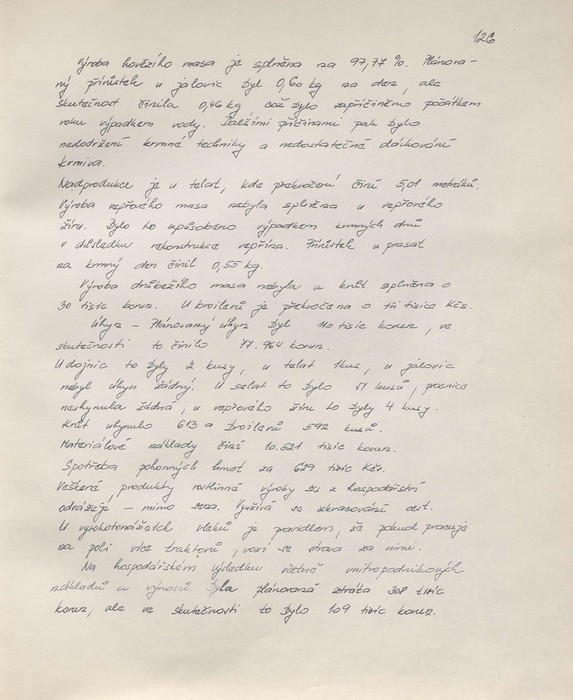 126
Výroba hovězího masa je splněna na 97,77 %. Plánova-
ný přírůstek u jalovic byl 0,60 kg na den, ale
skutečnost činila 0,46 kg což bylo zapříčiněno počátkem
roku výpadkem vody. Dalšími příčinami pak bylo
nedodržení krmné techniky a nedostatečné dávkování
krmiva.
Nadprodukce je u telat, kde překročení činí 5,01 metráků.
Výroba vepřového masa nebyla splněna u vepřového
žíru. Bylo to způsobeno výpadkem krmných dnů
v důsledku rekonstrukce vepřína. Přírůstek u prasat
na krmný den činil 0,55 kg.
Výroba drůbežího masa nebyla u krůt splněna o
30 tisíc korun. U broilerů je překročena o tři tisíce Kčs.
Úhyn – Plánovaný úhyn byl 110 tisíc korun, ve
skutečnosti to činilo 77.964 korun.
U dojnic to byly 2 kusy, u telat 1kus, u jalovic
nebyl úhyn žádný. U selat to bylo 51 kusů, prasnice
neuhynula žádná, u vepřového žíru to byly 4 kusy.
Krůt uhynulo 613 a broilerů 592 kusů.
Materiálové náklady činí 10.521 tisíc korun.
Spotřeba pohonných hmot za 629 tisíc Kčs.
Veškeré produkty rostlinné výroby se z hospodářství
odvážejí – mimo sena. Využívá se zkracování cest.
U vysokotonážních vleků je pravidlem, že pokud pracuje
na poli více traktorů, vozí se strava za nimi.
Na hospodářském výsledku včetně vnitropodnikových
nákladů a výnosů byla plánovaná ztráta 308 tisíc
korun, ale ve skutečnosti to bylo 109 tisíc korun.